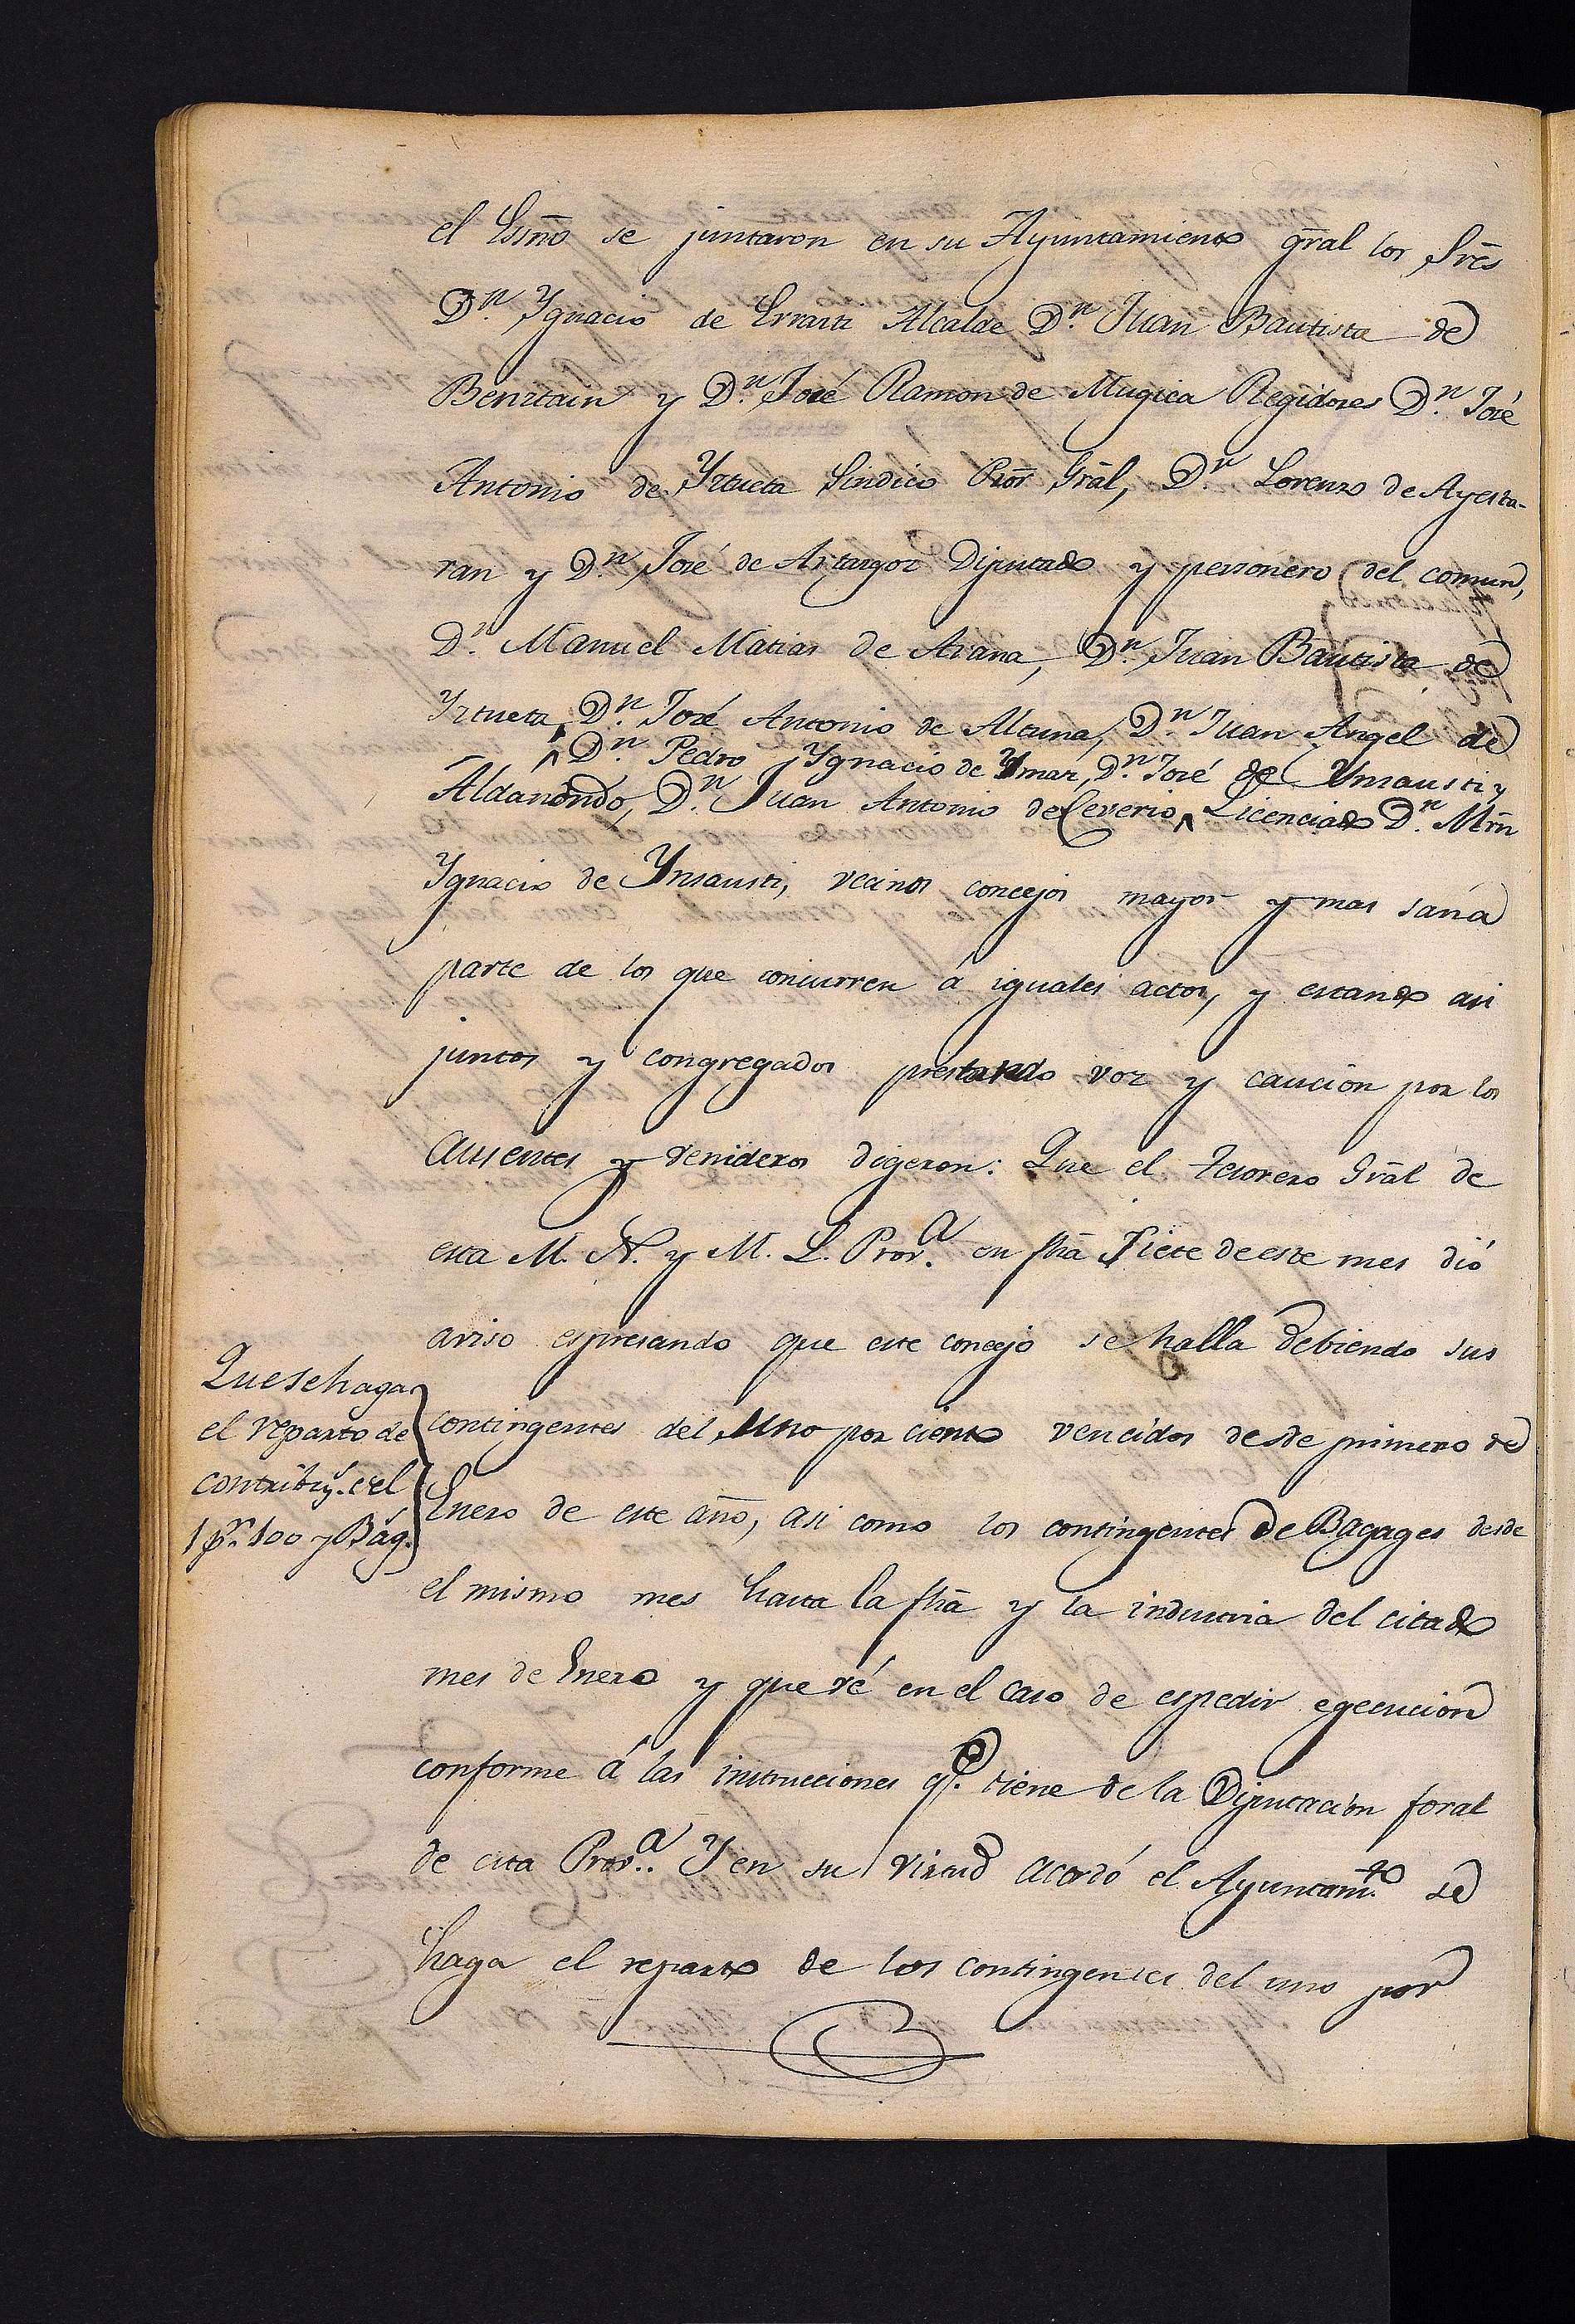 el Essño se juntaron en su Ayuntamiento gr̃al los Sres̃
Dn. Ygnacio de Errasti Alcalde Dn. Juan Bautista de
Benitain y Dn. José Ramon de Mugica Regidores Dn. José
Antonio de Yztueta Sindico Pror̃ Grãl, Dn. Lorenzo de Ayesta-
ran y Dn. José de Astargor Diputado y personero del comun,
Dn. Manuel Matias de Arana, Dn. Juan Bautista de
Yztueta, Dn. José Antonio de Altuna, Dn. Juan Angel de
^ Dn. Pedro Ygnacio de Ymaz, Dn. José de Ynsausti y
Aldanondo, Dn. Juan Antonio de Ceverio ^ Licenciado Dn. Mrñ
Ygnacio de Ynsausti, vecinos concejos mayor y mas sana
parte de los que concurren á iguales actos, y estando asi
juntos y congregados prestando voz y caucion por los
ausentes y venideros digeron: Que el tesorero Grãl de
esta M. N. y M. L. Prova. en fhã Siete de este mes dió
aviso espresando que este concejo se halla debiendo sus
contingentes del Uno por ciento vencidos desde primero de
Enero de este año, asi como los contingentes de Bagages desde
el mismo mes hasta la fhã y la industria del citado
mes de Enero y que vé en el caso de espedir egecucion
conforme á las instrucciones qe. tiene de la Diputacion foral
de esta Prova. Y en su virtud acordó el Ayuntamto. se
haga el reparto de los contingentes del uno por
Que se haga
el reparto de
contribn. del
1 pr. 100 y Bag.